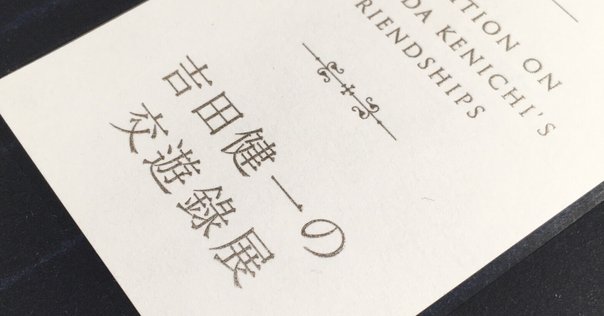 ITION ON
DA KENICHI'S
RIENDSHIPS
吉田健一の
交遊錄展